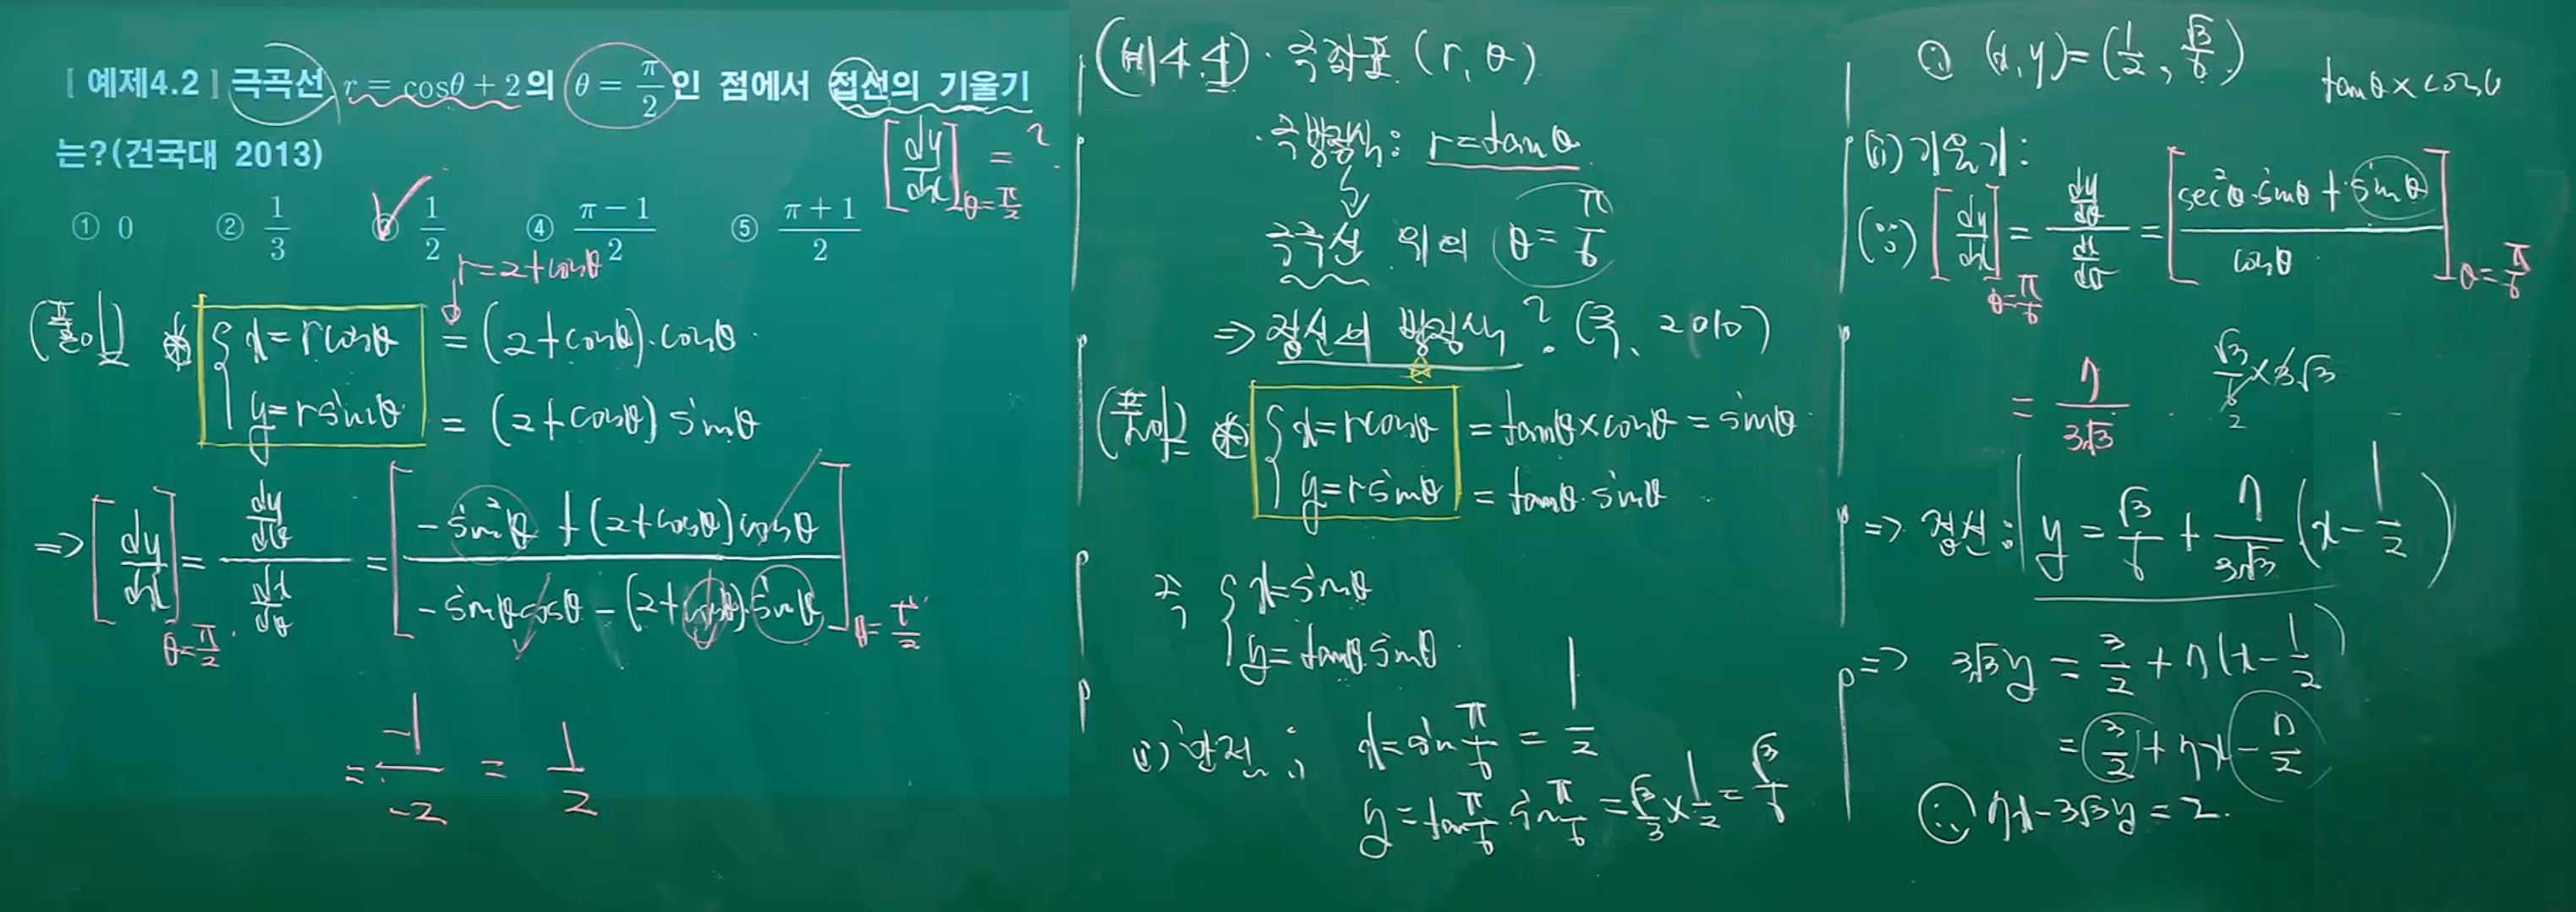 [ 예제4.2 ] 극곡선 r = cosθ + 2의 θ = π/2 인 점에서 접선의 기울기
는?(건국대 2013)
[dy/dx]θ=π/2 = ?
① 0 ② 1/3 ③ 1/2 ④ (π−1)/2 ⑤ (π+1)/2
r=2+cosθ
(풀이) * { x=rcosθ = (2+cosθ)·cosθ
y=rsinθ = (2+cosθ) sinθ
=> [dy/dx]θ=π/2 = (dy/dθ)/(dx/dθ) = [(-sin²θ + (2+cosθ)cosθ)/(-sinθcosθ - (2+cosθ)·sinθ)]θ=π/2
= -1/-2 = 1/2
(예4.4)· 극좌표 (r, θ)
·극방정식: r=tanθ
극곡선 위의 θ=π/6
=> 접선의 방정식? (국, 2010)
(풀이) * { x=rcosθ = tanθ×cosθ = sinθ
y=rsinθ = tanθ·sinθ
즉 { x=sinθ
y=tanθ·sinθ
(i) 한점 ; x=sin π/6 = 1/2
y=tan π/6 · sin π/6 = √3/3 × 1/2 = √3/6
∴ (x,y)=(1/2, √3/6)
tanθ×cosθ
(ii) 기울기:
(∵) [dy/dx]θ=π/6 = (dy/dθ)/(dx/dθ) = [(sec²θ·sinθ + sinθ)/cosθ]θ=π/6
= 7/3√3
√3/6 × 3√3
2
=> 접선: y = √3/6 + 7/3√3 (x - 1/2)
=> 3√3y = 3/2 + 7(x - 1/2)
= 3/2 + 7x - 7/2
∴ 7x-3√3y = 2.